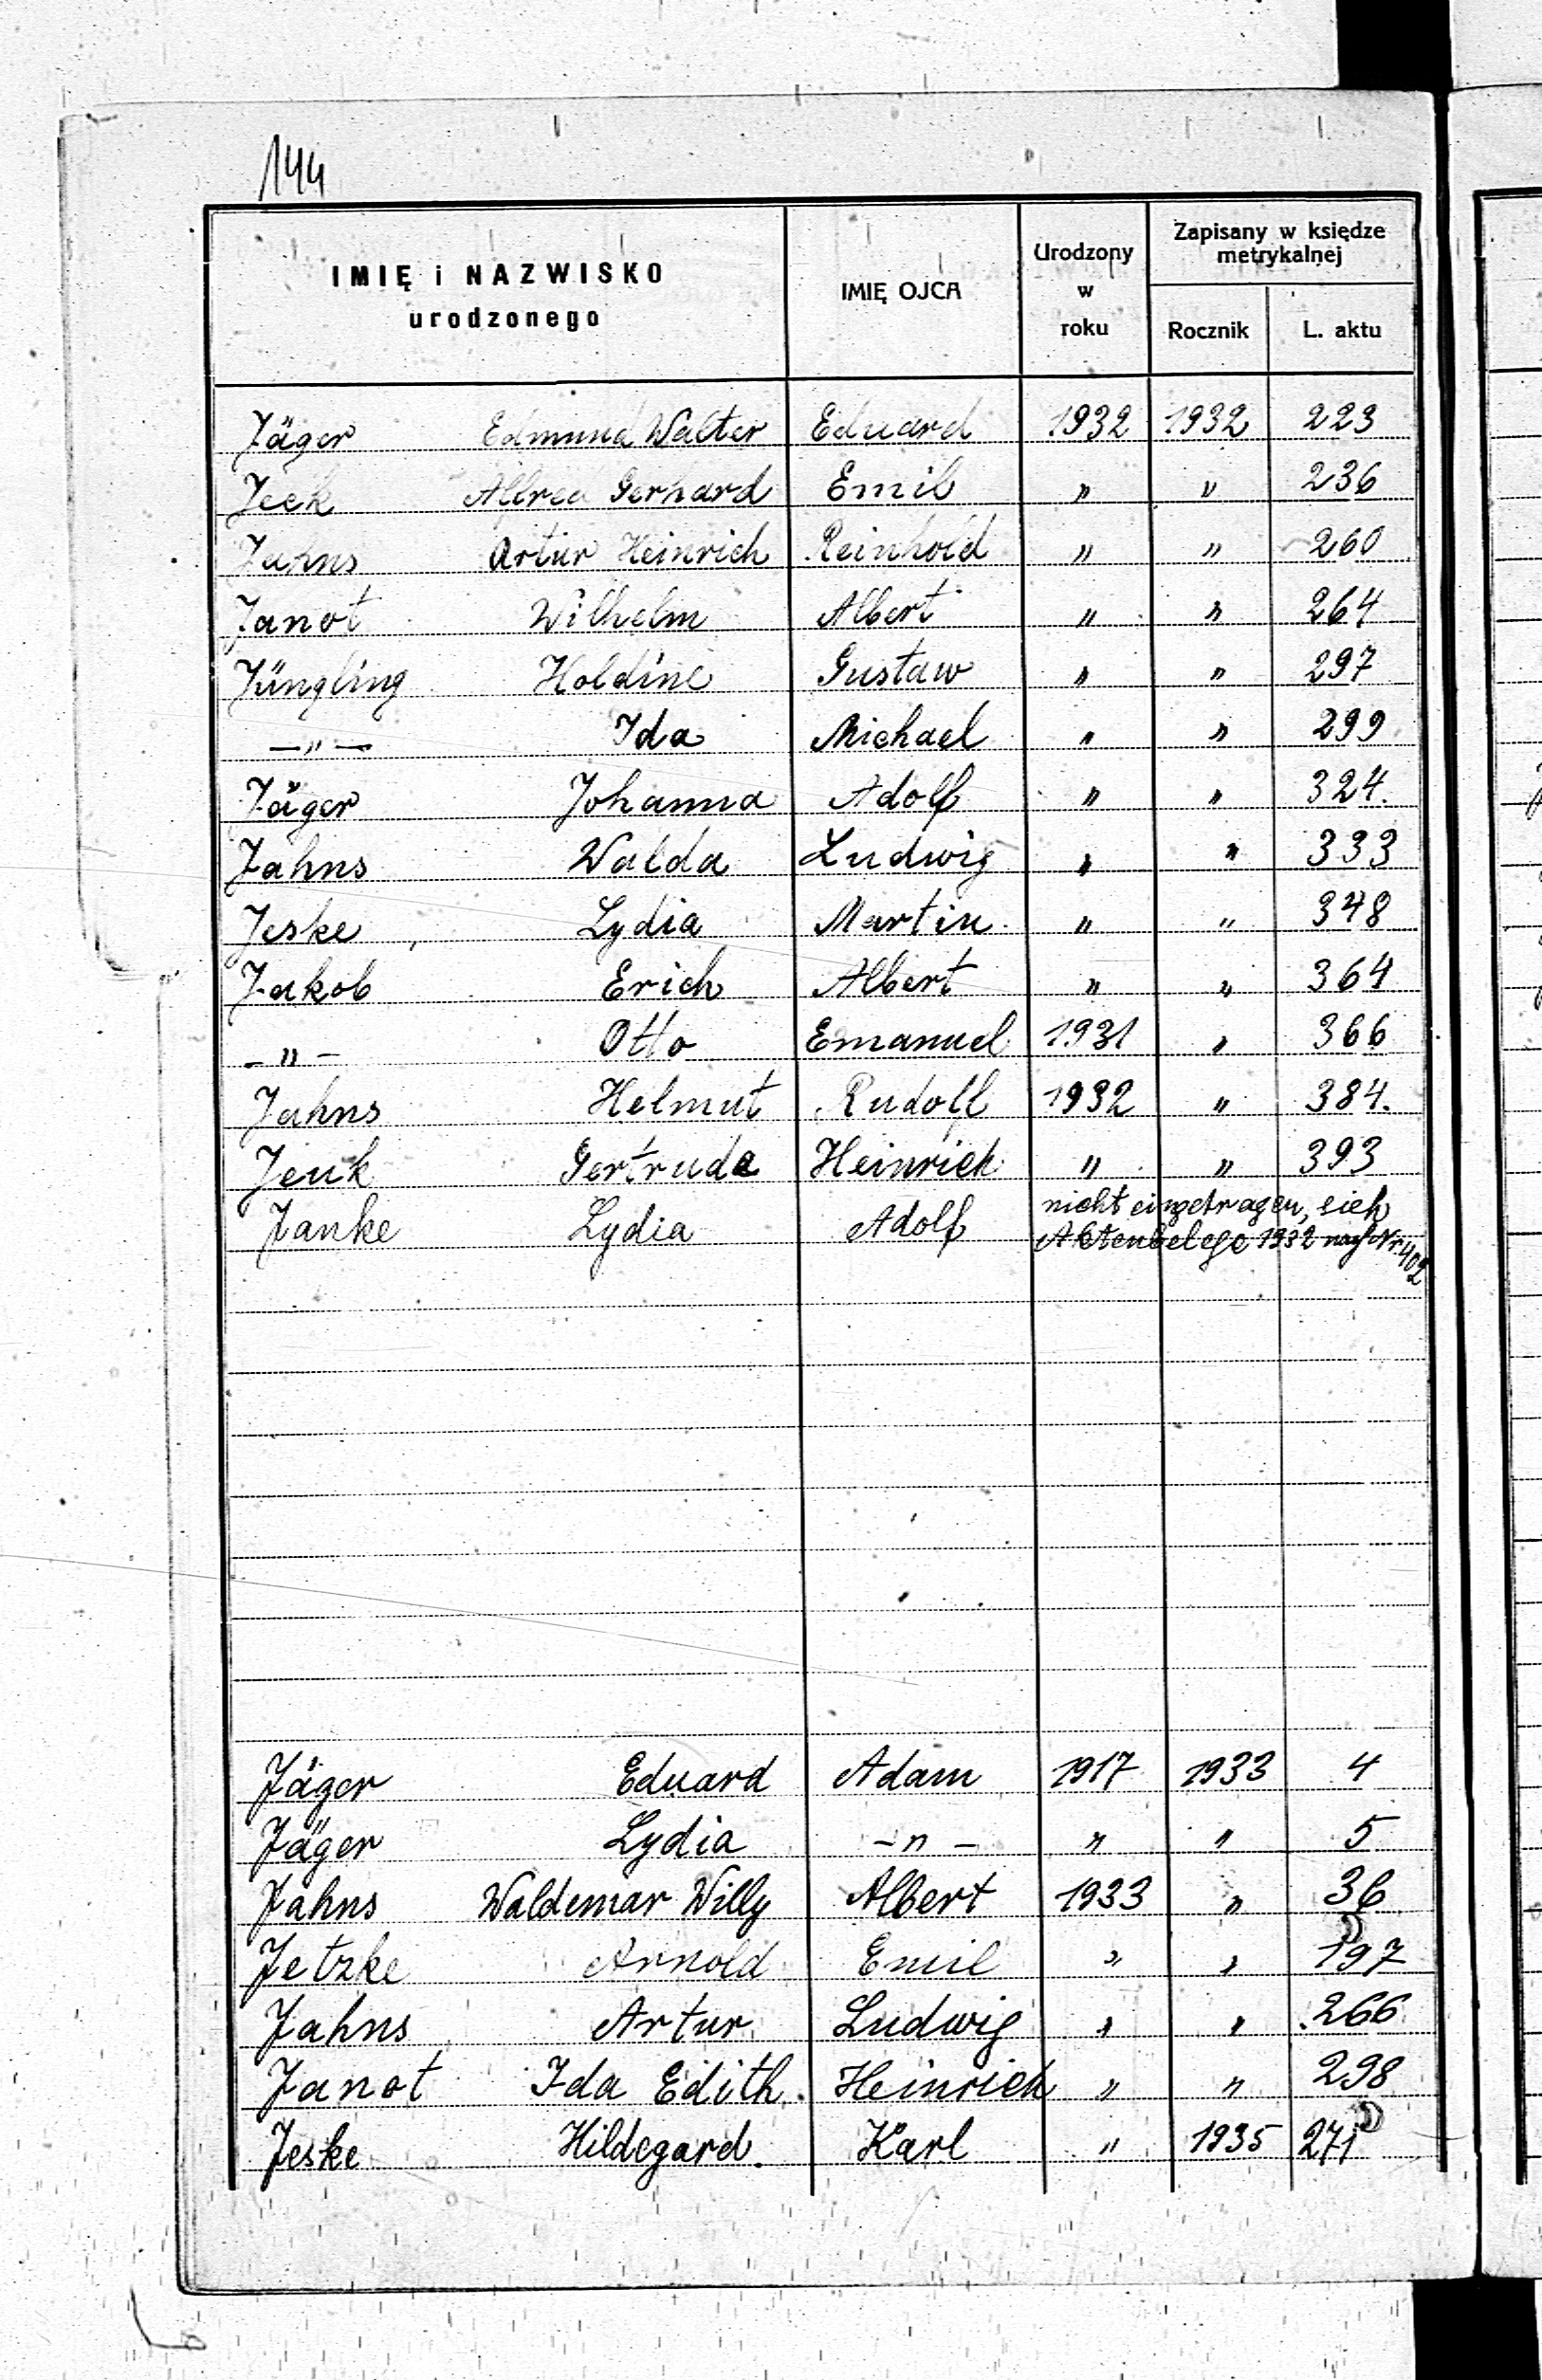 144
IMIĘ i NAZWISKO urodzonego IMIĘ OJCA Urodzony w roku Zapisany w księdze metrykalnej Rocznik L. aktu
Jäger Edmund Walter Eduard 1932 1932 223
Jeck Alfred Gerhard Emil " " 236
Jahns Artur Heinrich Reinhold " " 260
Janot Wilhelm Albert " " 264
Jüngling Holdine Gustaw " " 297
—"— Ida Michael " " 299
Jäger Johanna Adolf " " 324.
Jahns Walda Ludwig " " 333
Jeske Lydia Martin " " 348
Jakob Erich Albert " " 364
-"- Otto Emanuel 1931 " 366
Jahns Helmut Rudolf 1932 " 384.
Jeuk Gertrude Heinrich " " 393
Janke Lydia Adolf nicht eingetragen, sieh
Aktenbelege 1932 nach Nr. 402
Jäger Eduard Adam 1917 1933 4
Jäger Lydia -"- " " 5
Jahns Waldemar Willy Albert 1933 " 36
Jetzke Arnold Emil " " 197
Jahns Artur Ludwig " " 266
Janot Ida Edith. Heinrich " " 298
Jeske Hildegard. Karl " 1935 271